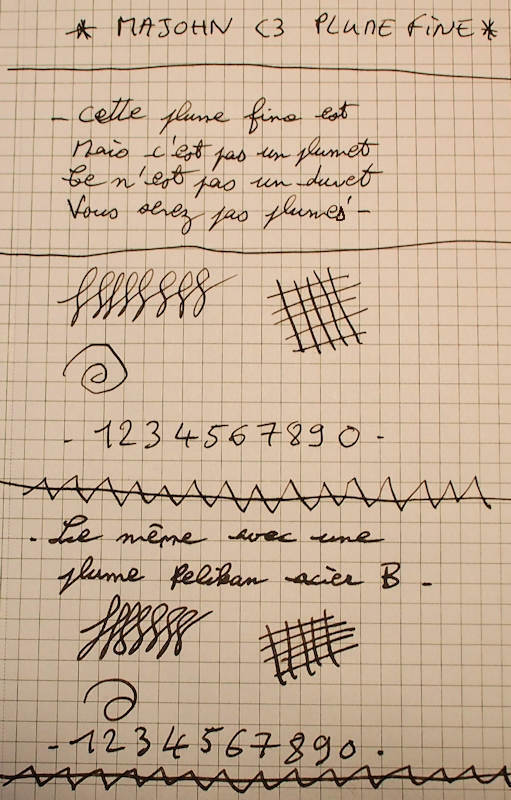 * MAJOHN C3 PLUME FINE *
- Cette plume fine est
Mais c'est pas un plumet
Ce n'est pas un duvet
Vous serez pas plumés -
- 1234567890 -
. Le même avec une
plume Pelikan acier B -
- 1234567890 .